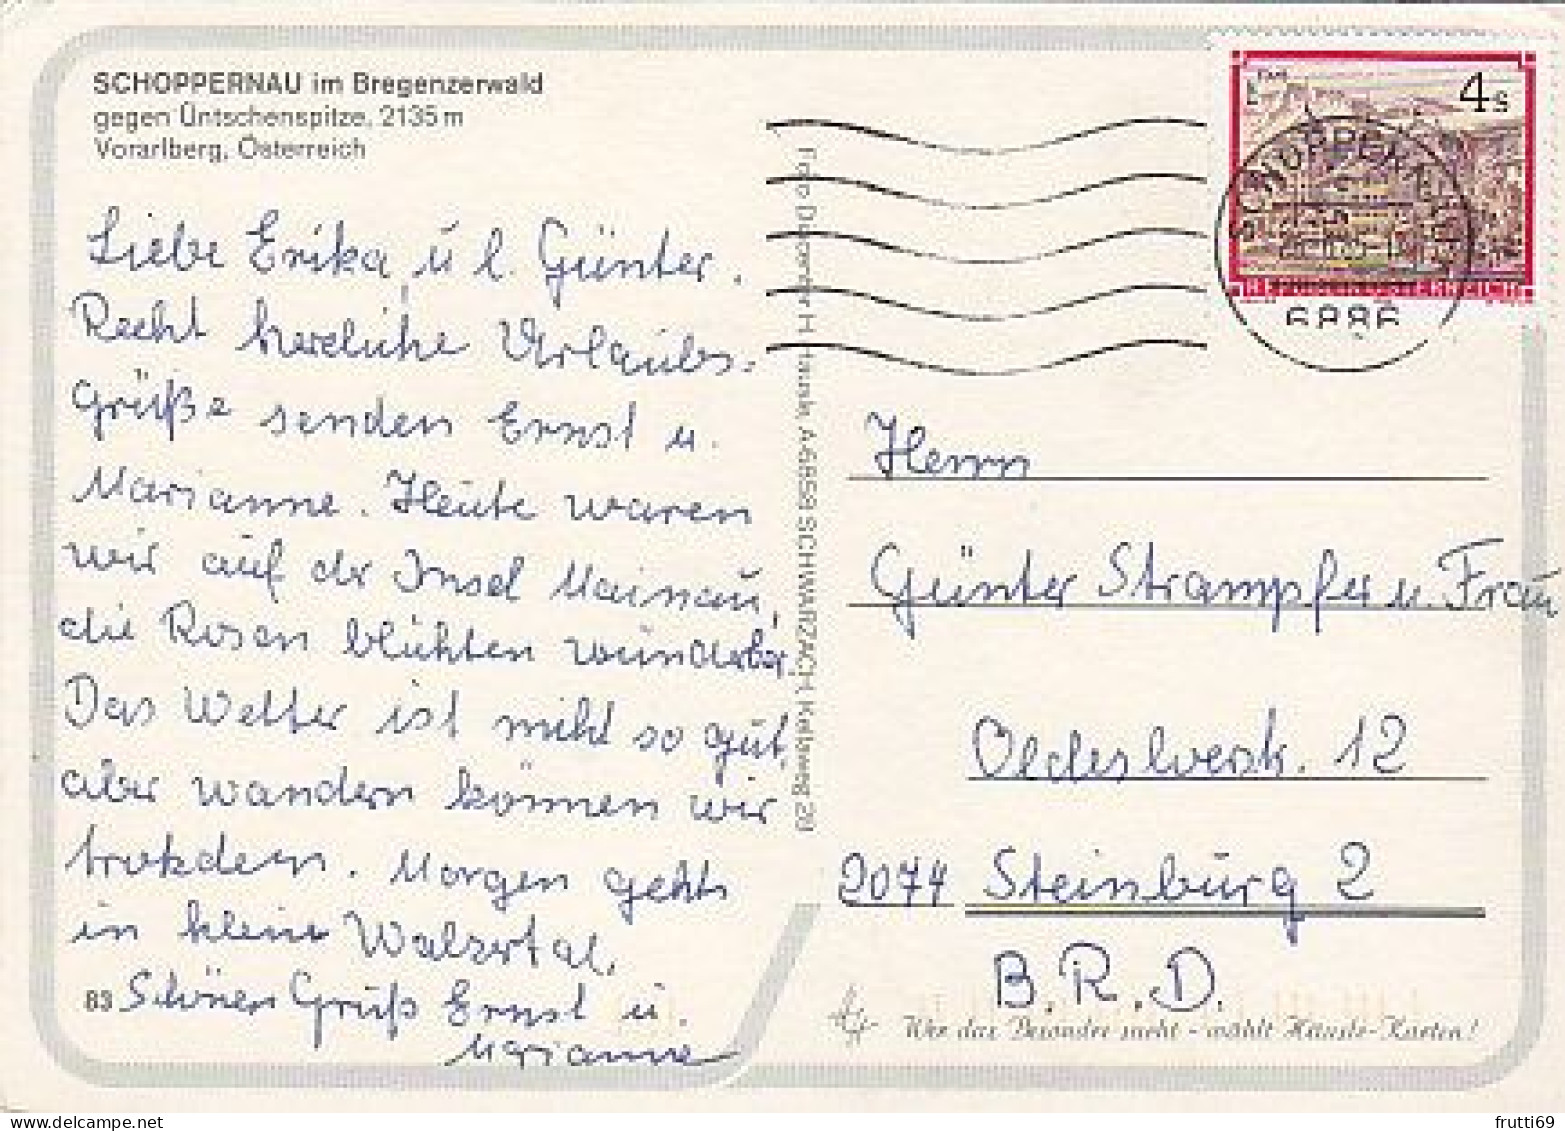 SCHOPPERNAU im Bregenzerwald
gegen Üntschenspitze, 2135 m
Vorarlberg, Österreich
Liebe Erika u l. Günter.
Recht herzliche Urlaubs-
grüße senden Ernst u.
Marianne. Heute waren
wir auf der Insel Mainau,
die Rosen blühten wunderbar.
Das Wetter ist nicht so gut,
aber wandern können wir
trotzdem. Morgen gehts
in kleine Walsertal.
83 Schönen Gruß Ernst u.
Marianne
HÄusle, A-6858 SCHWARZACH, Kellaweg 20
4 S
REPUBLIK ÖSTERREICH
SCHOPPERNAU
6886
Herrn
Günter Strampfer u. Frau
Oldesloestr. 12
2074 Steinburg 2
B.R.D.
Wer das Besondre sucht - wählt Häusle-Karten!
frutti69